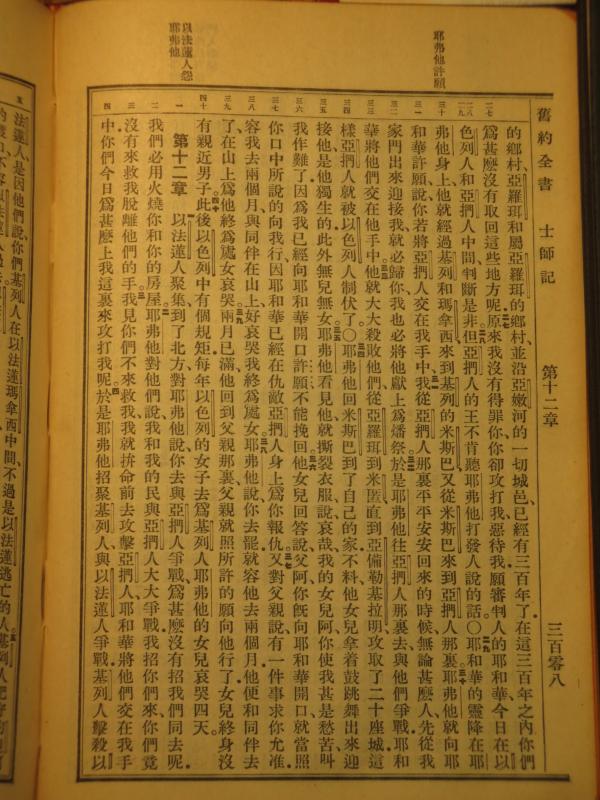 耶弗他許願
以法蓮人怨
耶弗他
舊約全書 士師記 第十二章 三百零八
的鄉村、亞羅珥和屬亞羅珥的鄉村、並沿亞嫩河的一切城邑、已經有三百年了、在這三百年之內、你們
爲甚麼沒有取回這些地方呢。原來我沒有得罪你、你卻攻打我、惡待我、願審判人的耶和華、今日在以
色列人和亞捫人中間、判斷是非。但亞捫人的王不肯聽耶弗他打發人說的話○耶和華的靈降在耶
弗他身上、他就經過基列和瑪拿西、來到基列的米斯巴、又從米斯巴來到亞捫人那裏。耶弗他就向耶
和華許願、說、你若將亞捫人交在我手中、我從亞捫人那裏平平安安回來的時候、無論甚麼人、先從我
家門出來迎接我、就必歸你、我也必將他獻上爲燔祭。於是耶弗他往亞捫人那裏去、與他們爭戰、耶和
華將他們交在他手中。他就大大殺敗他們、從亞羅珥到米匿、直到亞備勒基拉明、攻取了二十座城、這
樣亞捫人就被以色列人制伏了○耶弗他回米斯巴到了自己的家、不料、他女兒拿着鼓跳舞出來迎
接他、是他獨生的、此外無兒無女。耶弗他看見他、就撕裂衣服、說、哀哉、我的女兒阿、你使我甚是愁苦、叫
我作難了、因爲我已經向耶和華開口許願、不能挽回。他女兒回答說、父阿、你旣向耶和華開口、就當照
你口中所說的向我行、因耶和華已經在仇敵亞捫人身上爲你報仇。又對父親說、有一件事求你允准、
容我去兩個月、與同伴在山上、好哀哭我終爲處女。耶弗他說、你去罷、就容他去兩個月、他便和同伴去
了、在山上爲他終爲處女哀哭。兩月已滿、他回到父親那裏、父親就照所許的願向他行了、女兒終身沒
有親近男子。此後以色列中有個規矩、每年以色列的女子去爲基列人耶弗他的女兒哀哭四天。
第十二章 以法蓮人聚集、到了北方、對耶弗他說、你去與亞捫人爭戰、爲甚麼沒有招我們同去呢。
我們必用火燒你和你的房屋。耶弗他對他們說、我和我的民與亞捫人大大爭戰、我招你們來、你們竟
沒有來救我脫離他們的手。我見你們不來救我、我就拚命前去攻擊亞捫人、耶和華將他們交在我手
中、你們今日爲甚麼上我這裏來攻打我呢。於是耶弗他招聚基列人、與以法蓮人爭戰、基列人擊殺以
法蓮人、是因他們說、你們基列人在以法蓮瑪拿西中間、不過是以法蓮逃亡的人。基列人把守